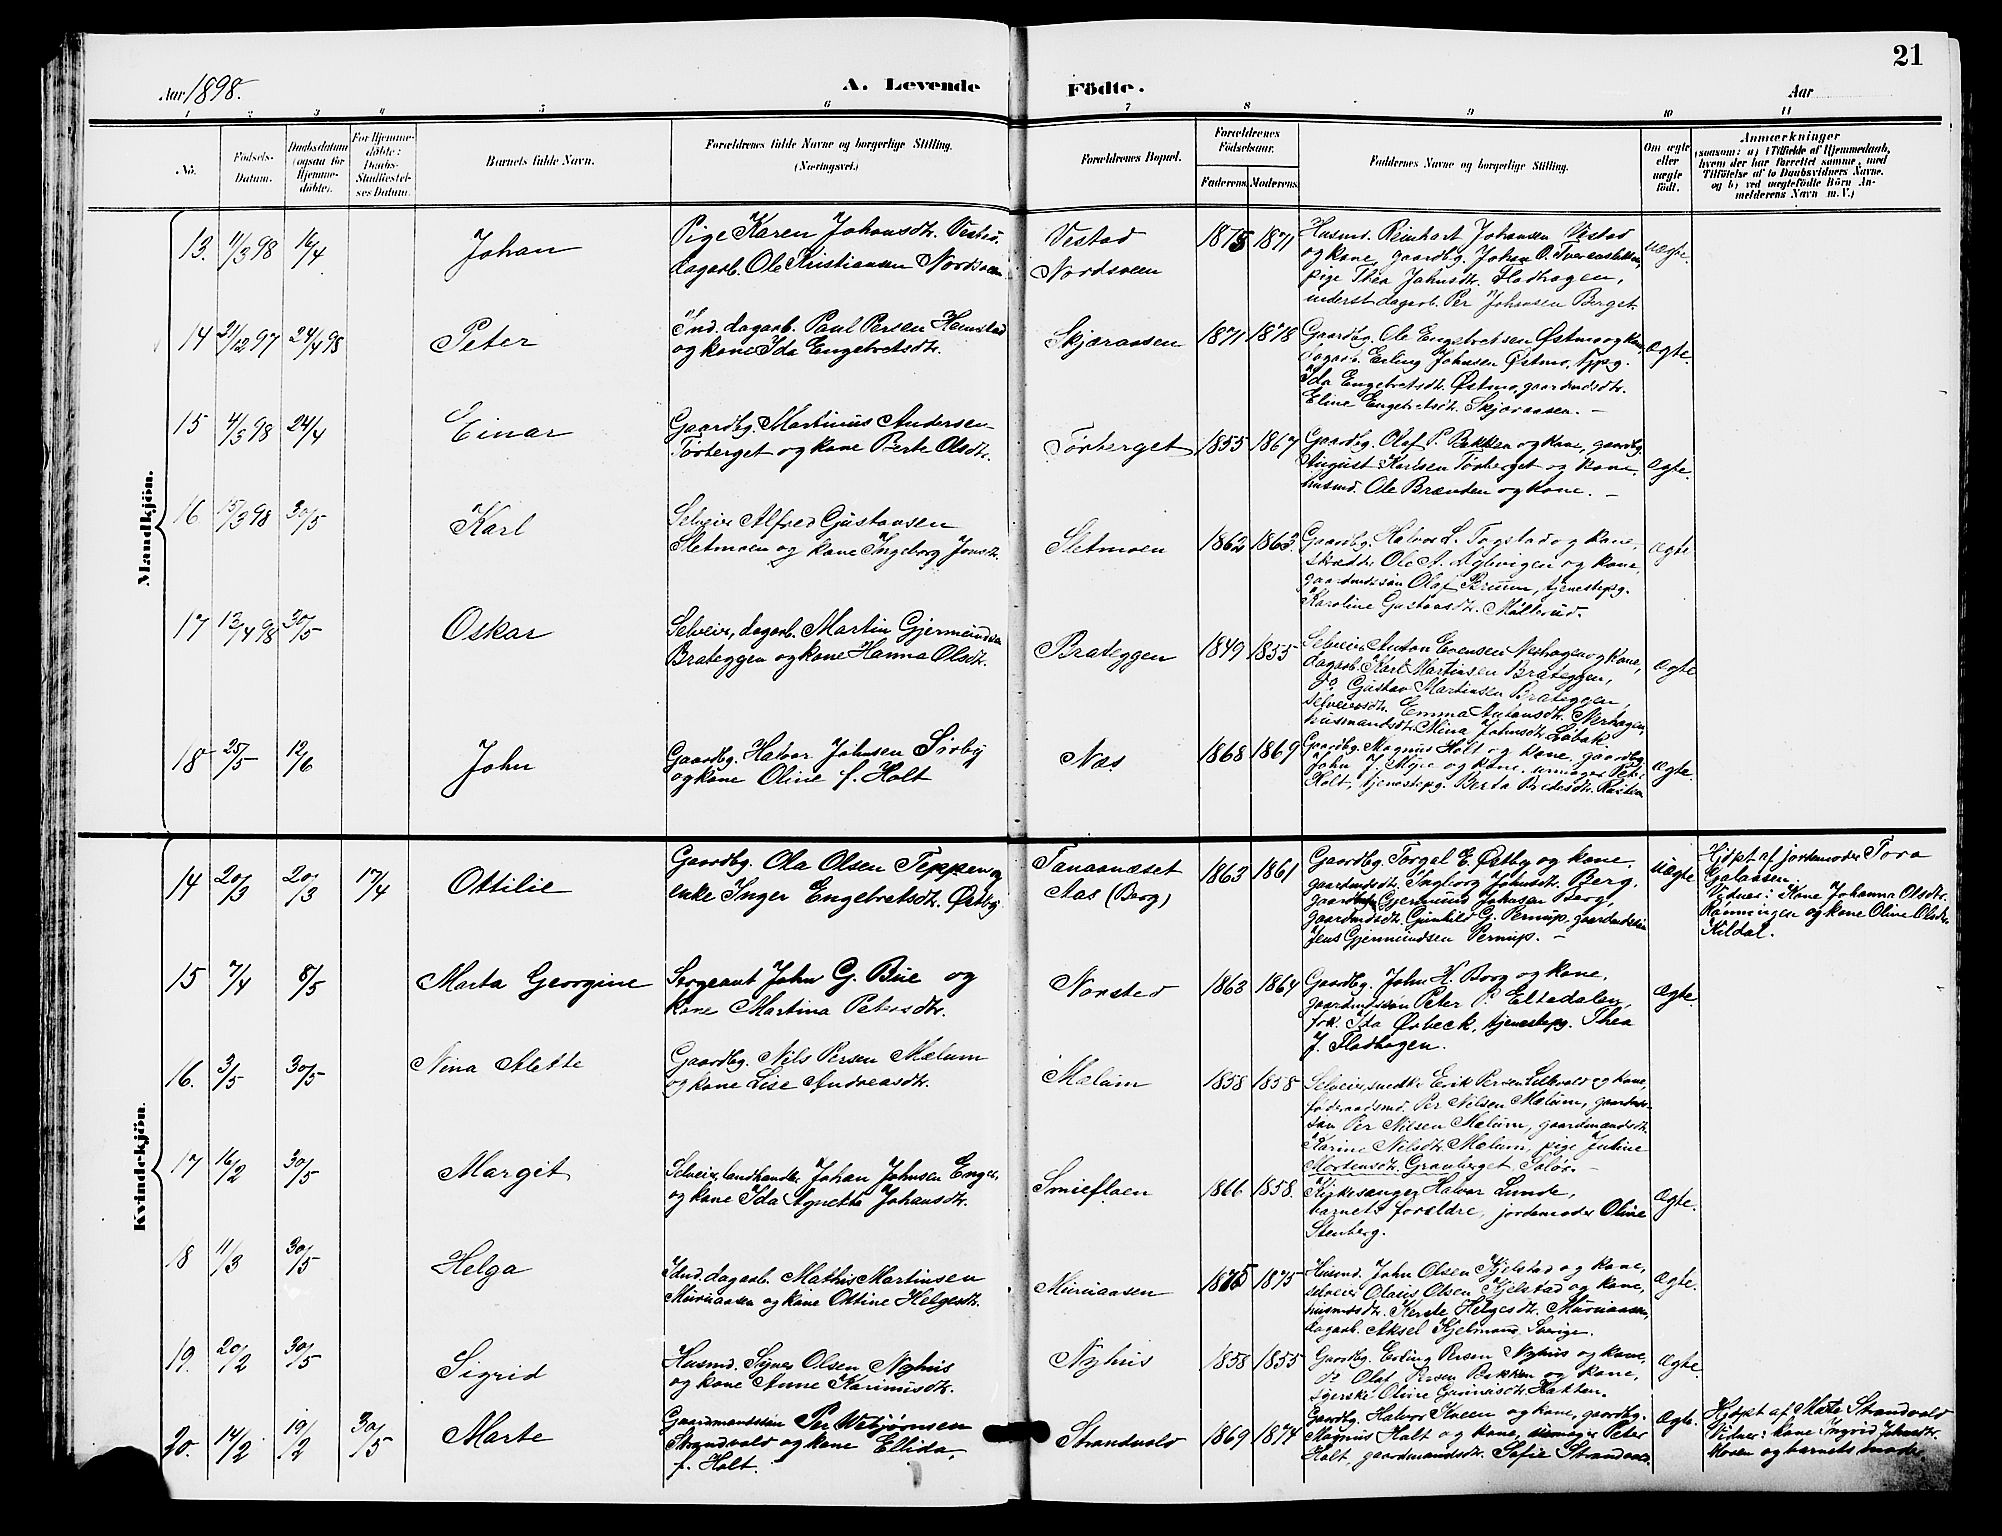 21
Aar 1898.
A. Levende
Födte.
Aar
1 2 3 4 5 6 7 8 9 10 11
No.
Födsels-Datum.
Daabsdatum (ogsaa for Hjemmedöbte).
For Hjemmedöbte: Daabs-Stadfæstelses Datum.
Barnets fulde Navn.
Forældrenes fulde Navne og borgerlige Stilling.
(Næringsvei.)
Forældrenes Bopæl.
Forældrenes Födselsaar.
Faderens. Moderens.
Faddernes Navne og borgerlige Stilling.
Om ægte eller uægte födt.
Anmærkninger
(saasom: a) i Tilfælde af Hjemmedaab, hvem der har forrettet samme, med Tilföielse af to Daabsvidners Navne, og b) ved uægtefödte Börn Anmelderens Navn m. V.)
Mandkjön.
13. 11/3 98 16/4 Johan
Pige Karen Johansdtr. Vestad.
dagarb. Ole Kristiansen Nordsveen
Vestad
Nordsveen
1875 1871
Husmd. Reinhart Johansen Vestad
og kone, gaardbg. Johan O.
pige Thea Johnsdtr. Fladhagen,
underst dagarb. Per Johansen Berget.
uægte.
14 21/12 97 24/4 98 Peter
Ind. dagarb. Paul Persen Hemstad
og kone Ida Engebretsdtr.
Skjæraasen
1871 1878
Gaardbg. Ole Engebretsen Østmo og kone,
dagarb. Erling Johnsen Østmo, tjpg.
Ida Engebretsdtr. Østmo, gaardmdsdtr.
Eline Engebretsdtr. Skjæraasen. –
ægte.
15 4/3 98 24/4 Einar
Gaardbg. Martinus Andersen
Törberget og kone Berte Olsdtr.
Törberget
1855 1867
Gaardbg. Olaf P. Bakken og kone, gaardbg.
August Karlsen Törberget og kone,
husmd. Ole Brænden og kone. –
ægte.
16 15/3 98 30/5 Karl
Selveier Alfred Gustavsen
Sletmoen og kone Ingeborg Jonsdtr.
Sletmoen
1862 1863
Gaardbg. Halvor L. Togstad og kone,
skrædder Ole A. og kone,
gaardmdssön Olaf tjenestepg.
Karoline Gustavsdtr. Mölterud.
ægte
17 13/4 98 30/5 Oskar
Selveier, dagarb. Martin Gjermundsen
Brateggen og kone Hanna Olsdtr.
Brateggen
1849 1855
Selveier Anton Evensen Nerhagen og kone,
dagarb. Karl Martinsen Brateggen,
do Gustav Martinsen Brateggen,
selveiersdtr. Emma Antonsdtr. Nerhagen,
husmandsdtr. Mina Johnsdtr. Löbak.
ægte
18 25/5 12/6 John
Gaardbg. Halvor Johnsen Sörby
og kone Oline f. Holt
Næs
1868 1869
Gaardbg. Magnus Holt og kone, gaardbg.
John J. Myre og kone, urmager Peter
Holt, tjenestepg. Berta
ægte.
Kvindekjön.
14 20/3 20/3 17/4 Ottilie
Gaardbg. Ola Olsen Teppen og
enke Inger Engebretsdtr. Østby
Tanaanæset
Aas (Berg)
1863 1861
Gaardbg. Torgal E. Østby og kone,
gaardmdsdtr. Ingborg Johnsdtr. Berg,
Gjermund Johnsen Berg,
gaardmdsdtr. Gunhild G. Pernup, gaardmdssön
Jens Gjermundsen Pernup. –
uægte
Hjdpt af jordemoder Tora
Galaasen.
Vidner: Kone Johanna Olsdtr.
Rönningen og kone Oline Olsdtr.
Kildal.
15 7/4 8/5 Marta Georgine
Sergeant John G. Bue og
kone Martina Petersdtr.
Norsted
1863 1864
Gaardbg. John H. Borg og kone,
gaardmdssön Peter P. Eltadalen,
frk. Ida Ørbeck, tjenestepg. Thea
J. Fladhagen.
ægte.
16. 3/5 30/5 Nina Alette
Gaardbg. Nils Persen Mælum
og kone Lise Andreasdtr.
Mælum
1858 1858
Selveier, smed Erik Persen og kone,
föderaadsmd. Per Nilsen Mælum, gaardmds-
sön Per Nilsen Mælum, gaardmandsdtr.
Karine Nilsdtr. Mælum, pige Juline
Mortensdtr. Granberget, Solör. –
17 16/2 30/5 Margit
Selveier, landhandler Johan Johnsen Enger
og kone Ida Agnette Johansdtr.
Smieflaen
1866 1858.
Kirkesanger Halvor Lunde,
barnets forældre, jordemoder Oline
Stenberg.
ægte.
18 11/3 30/5 Helga
Ind. dagarb. Mathis Martinsen
Muruaasen og kone Ottine Helgesdtr.
Muruaasen
1875 1875
Husmd. John Olsen Kjelstad og kone,
selveier Olaus Olsen Kjelstad og kone,
husmdsdtr. Kerste Helgesdtr. Muruaasen,
dagarb. Aksel Kjelmand, Sverige.
ægte.
19. 20/2 30/5 Sigrid
Husmd. Syver Olsen Nyhus
og kone Anne Karinusdtr.
Nyhus
1858 1855
Gaardbg. Erling Persen Nyhus og kone,
do Olaf Persen Bakken og kone,
Oline Gunnisdtr. Hatten.
ægte.
20. 14/2 19/2 30/5 Marte
Gaardmandssön Per Vebjörnsen
Strandvold og kone Ellida,
f. Holt.
Strandvold
1869 1874
Gaardbg. Halvor Kveen og kone, gaardbg.
Magnus Holt og kone, urmager Peter
Holt, gaardmandsdtr. Sofie Strandvold.
ægte.
Hjdpt af Mate Strandvold
Vidner: kone Ingrid Johnsdtr.
Moren og barnets moder.